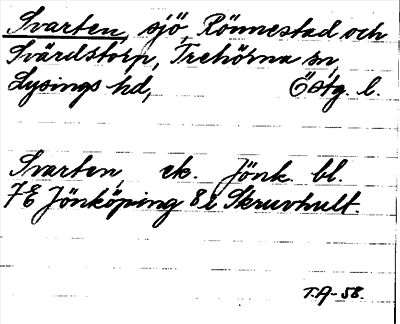 Svarten, sjö, Rönnestad och
Svärdstorp, Trehörna sn,
Lysings hd, Östg. l.
Svarten, ek. Jönk. bl.
7E Jönköping 8i Skruvhult.
T.A-58.